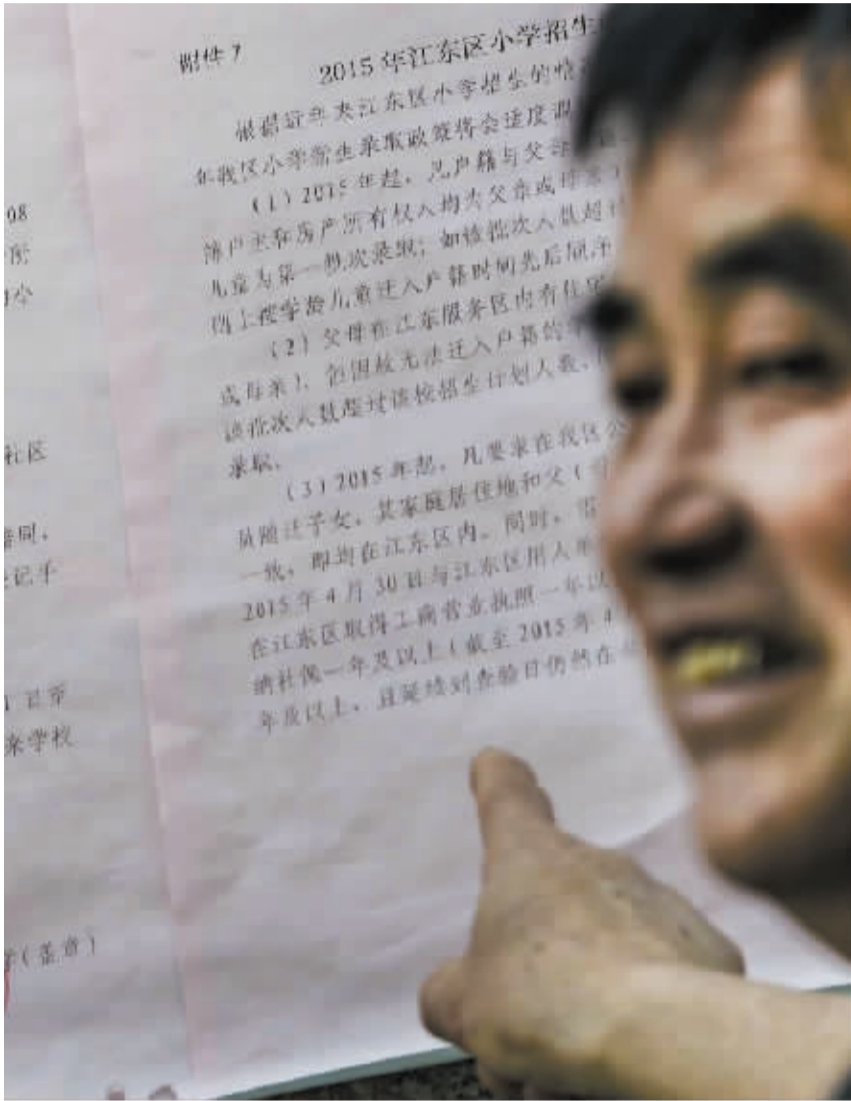 08
所
小
社区
陪同。
记手
来学校
学(盖章)
附件7
2015年江东区小学招生
根据近年来江东区小学招生的情
年我区小学新生录取政策将会适度调
(1)2015年起,凡户籍与父母
簿户主和房产所有权人均为父亲或母亲
儿童为第一批次录取;如该批次人数超
则上按学龄儿童迁入户籍时间先后顺序
(2)父母在江东服务区内有住房
或母亲),但因故无法迁入户籍的
该批次人数超过该校招生计划人数,
录取。
(3)2015年起,凡要求在我区公
员随迁子女,其家庭居住地和父(
一致,即均在江东区内。同时,需
2015年4月30日与江东区用人单
在江东区取得工商营业执照一年以
纳社保一年及以上(截至2015年4
年及以上,且延续到查验日仍然在